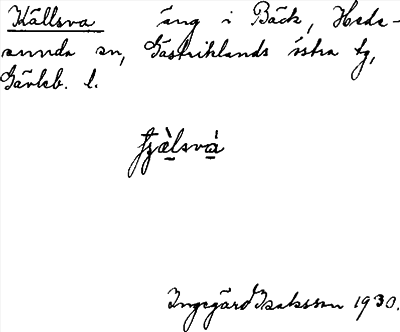 Källsva äng i Bäck, Hede-
sunda sn, Gästriklands östra tg,
Gävleb. l.
Ingegärd Isaksson 1930.